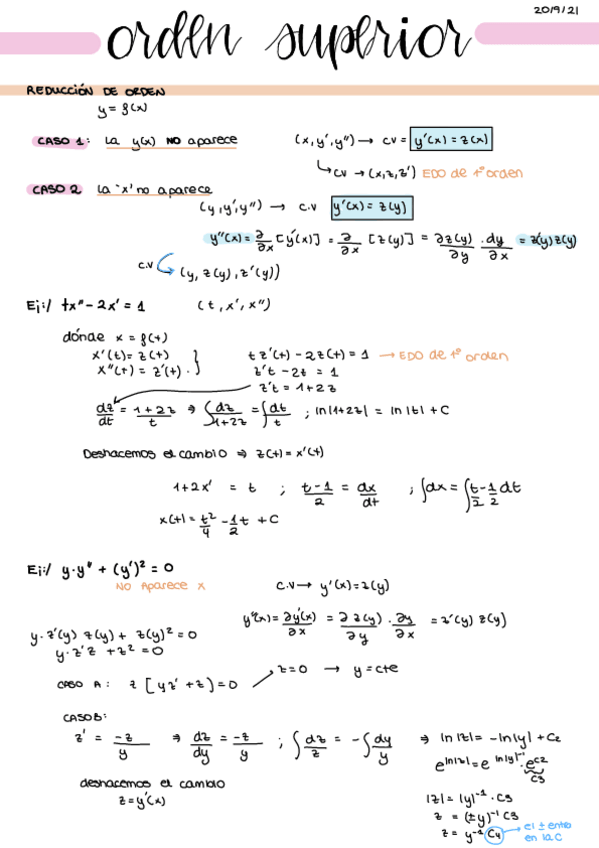 20/9/21
orden superior
REDUCCIÓN DE ORDEN
y = f(x)
CASO 1: La y(x) NO aparece (x, y', y'') → cv = y'(x) = z(x)
↳ cv → (x, z, z') EDO de 1º orden
CASO 2 La 'x' no aparece
(y, y', y'') → c.v y'(x) = z(y)
y''(x) = ∂/∂x [y'(x)] = ∂/∂x [z(y)] = ∂z(y)/∂y · dy/∂x = z'(y) z(y)
c.v (y, z(y), z'(y))
Ej:/ tx'' - 2x' = 1 (t, x', x'')
dónde x = f(t)
x'(t) = z(t) } t z'(t) - 2z(t) = 1 → EDO de 1º orden
x''(t) = z'(t) · z't - 2z = 1
z't = 1 + 2z
dz/dt = 1+2z/t ⇒ ∫ dz/1+2z = ∫ dt/t ; ln|1+2z| = ln|t| + C
Deshacemos el cambio ⇒ z(t) = x'(t)
1+2x' = t ; t-1/2 = dx/dt ; ∫dx = ∫ t/2 - 1/2 dt
x(t) = t²/4 - 1/2 t + C
Ej:/ y·y'' + (y')² = 0
NO Aparece x C.V → y'(x) = z(y)
y''(x) = ∂y'(x)/∂x = ∂z(y)/∂y · ∂y/∂x = z'(y) z(y)
y·z'(y) z(y) + z(y)² = 0
y·z'z + z² = 0
CASO A: z [yz' + z] = 0 z=0 → y = cte
CASO B:
z' = -z/y ⇒ dz/dy = -z/y ; ∫ dz/z = -∫ dy/y ⇒ ln|z| = -ln|y| + C₂
e^ln|z| = e^ln|y|⁻¹ · e^C2
C3
deshacemos el cambio
z = y'(x)
|z| = |y|⁻¹ · C3
z = (±y)⁻¹ C3
z = y⁻¹ C4 → el ± entra en la C